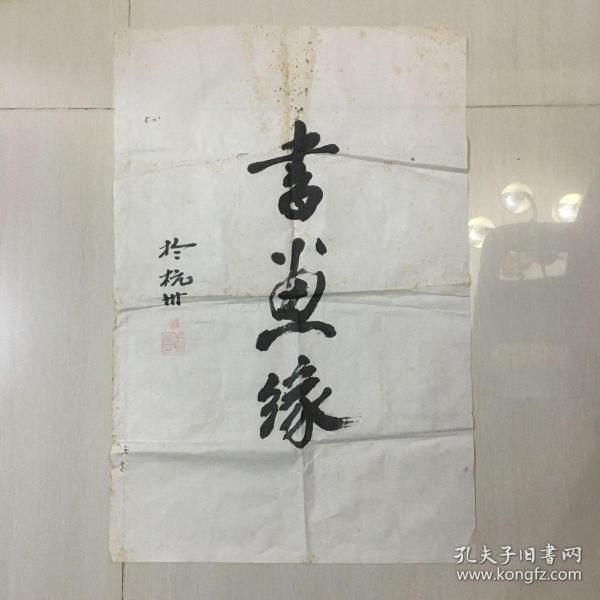 書畫缘
於杭州
孔夫子旧書网
www.kongfz.com